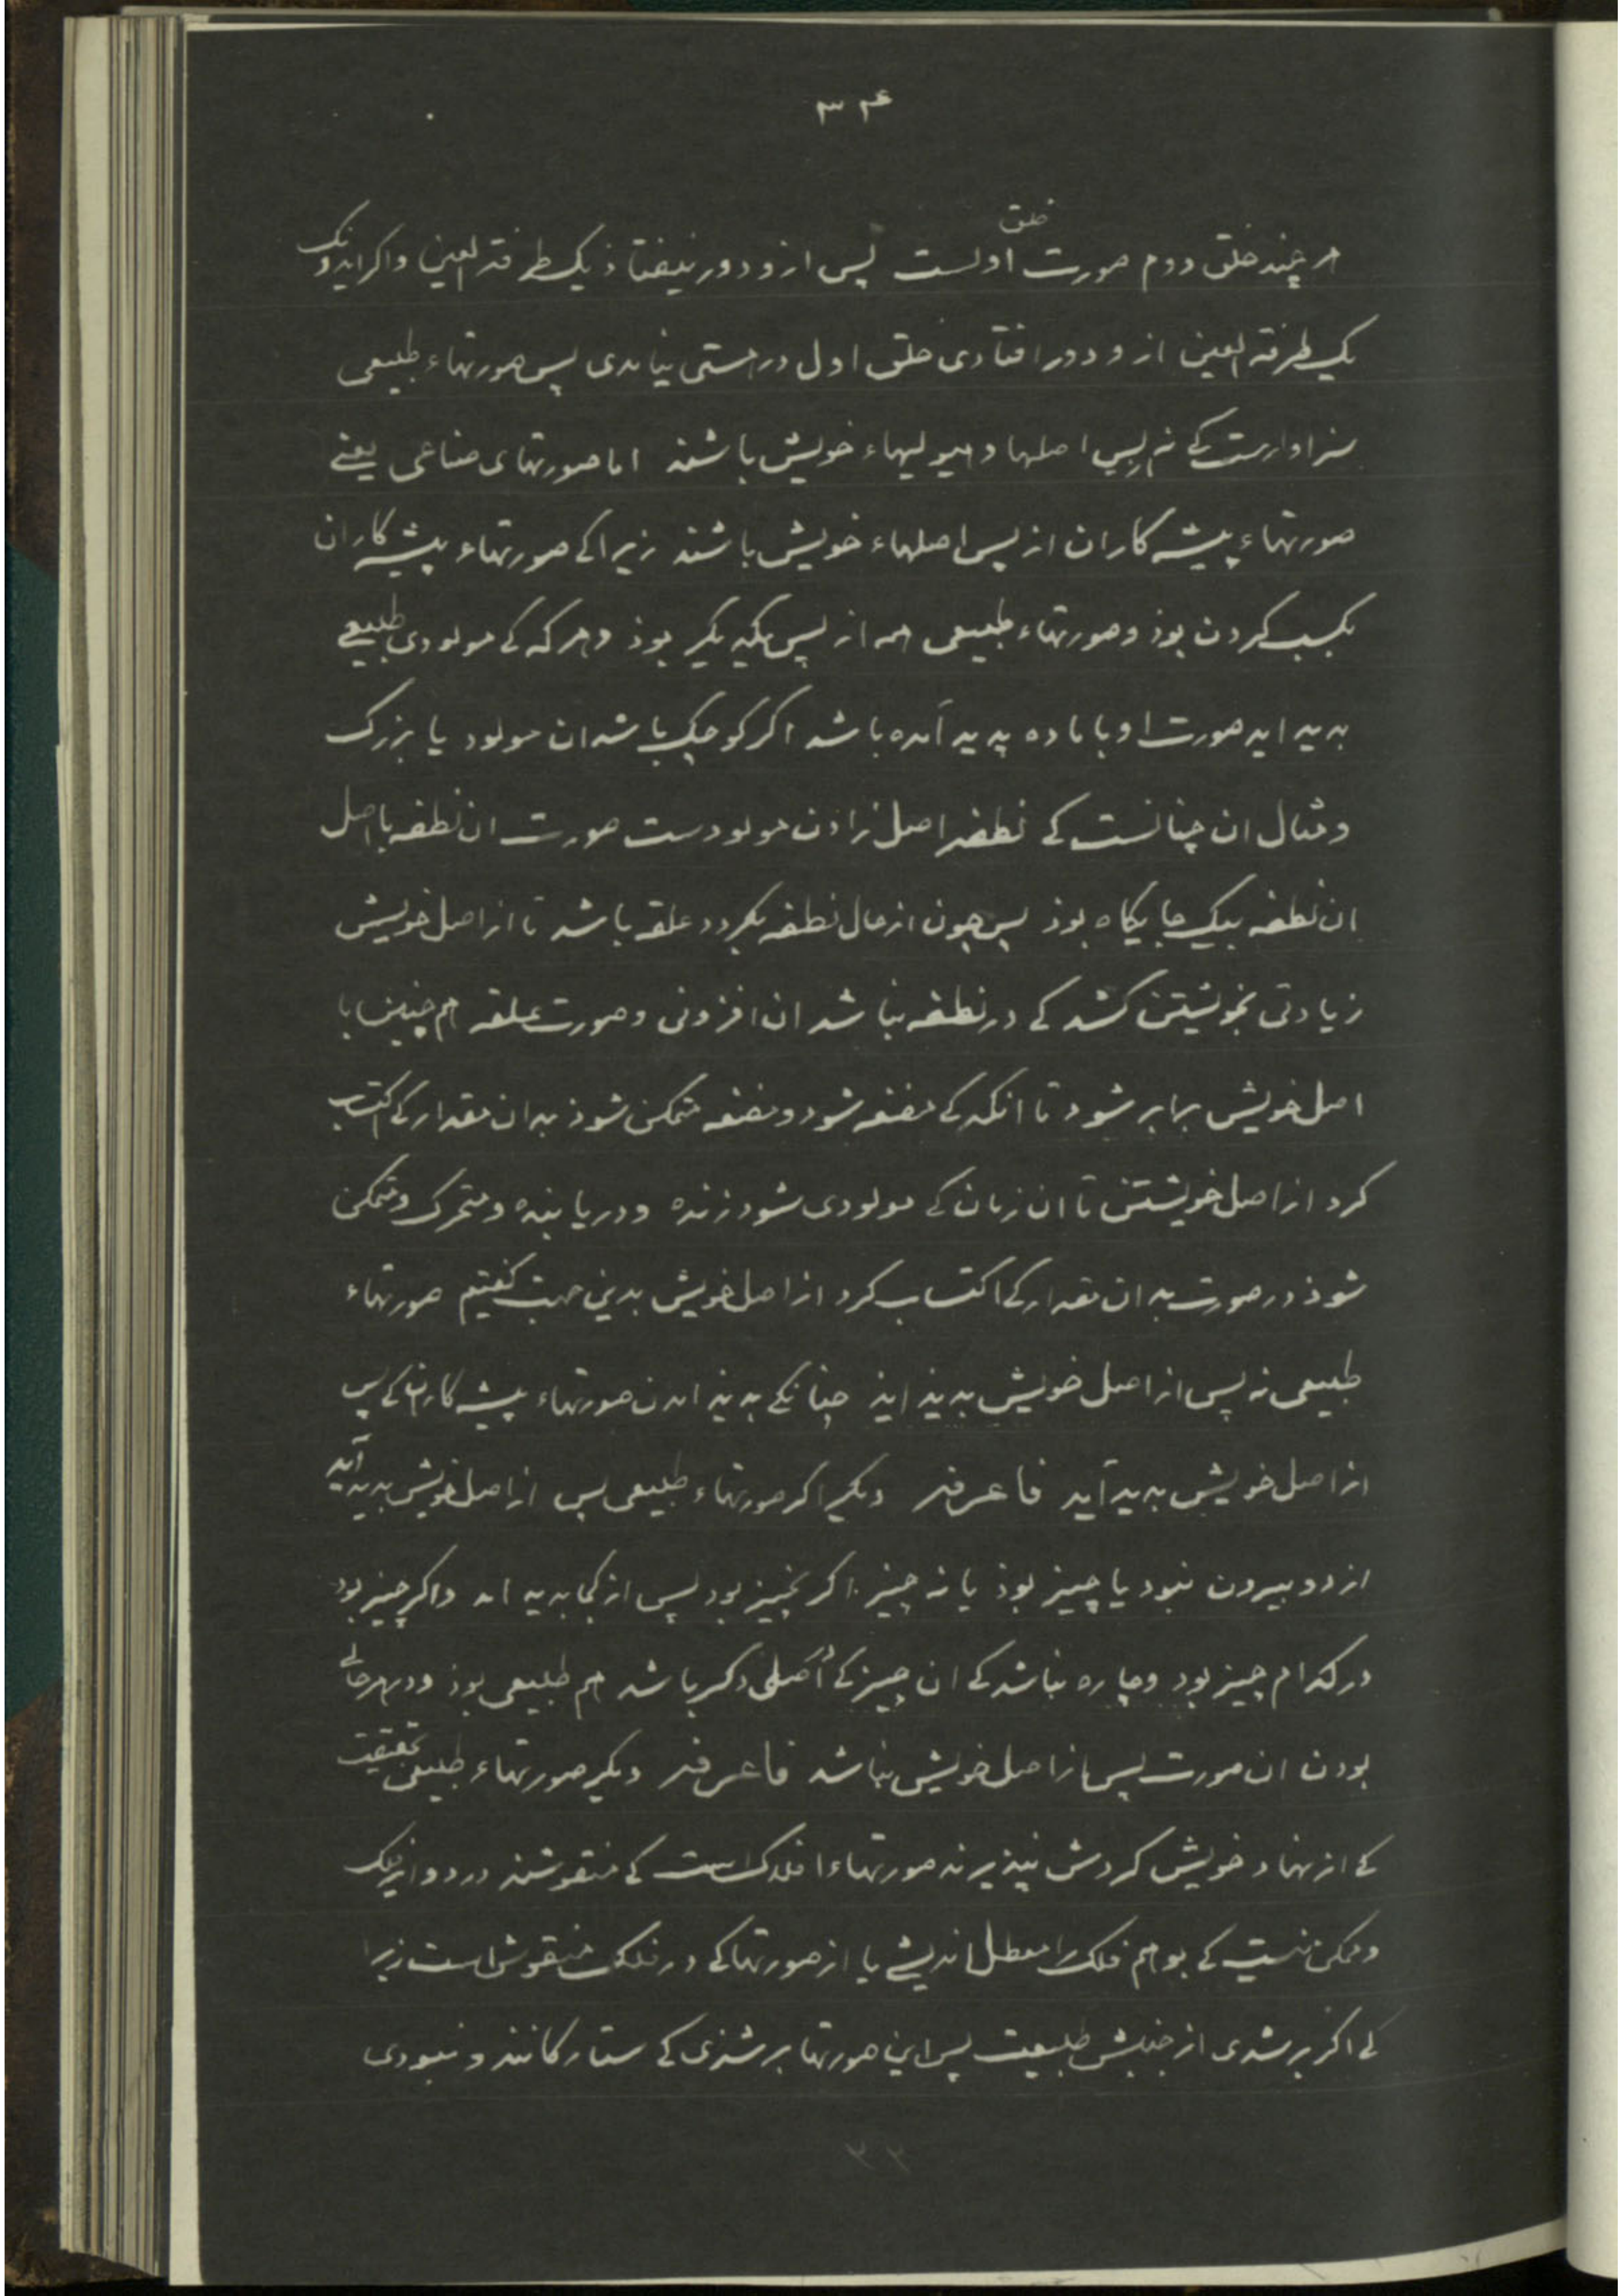 ۳۴
خلق
هر چند خلق دوم صورت اولست پس ازو دور نیفتاذ یک طرفة العین و اگر ایدونک
یک طرفة العین ازو دور افتادی خلق اول در هستی نیامدی پس صورتهاء طبیعی
سزاوارست کی نه از پس اصلها و هیولیهاء خویش باشند اما صورتهای صناعی یعنی
صورتهاء پیشه کاران از پس اصلهاء خویش باشند زیرا کی صورتهاء پیشه کاران
بکسب کردن بوذ و صورتهاء طبیعی همه از پس یکدیگر بوذ و هرگه کی مولودی طبیعی
بدید اید صورت او با ماده پدید آمده باشد اگر کوچک باشد ان مولود یا بزرک
و مثال ان چنانست کی نطفه اصل زادن مولودست صورت ان نطفه با اصل
ان نطفه بیک جایگاه بوذ پس چون از حال نطفه بگردد علقه باشد تا از اصل خویش
زیادتی بخویشتن کشد کی در نطفه نباشد ان افزونی و صورت علقه هم چنین با
اصل خویش برابر شود تا انگه کی مضغه شود و مضغه متمکن شوذ بدان مقدار کی اکتساب
کرد از اصل خویشتن تا ان زمان کی مولودی شود زنده و دریابنده و متحرک و متمکن
شوذ در صورت بدان مقدار کی اکتساب کرد از اصل خویش بدین جهت گفتیم صورتهاء
طبیعی نه پس از اصل خویش بدیذ ایذ چنانکی بدیذ امدن صورتهاء پیشه کاران کی پس
از اصل خویش بدید آید فاعرفه دیگر اگر صورتهاء طبیعی پس از اصل خویش بدید آید
از دو بیرون نبود یا چیز بوذ یا نه چیز اگر نچیز بود پس از کجا بدید امد و اگر چیز بود
در کدام چیز بود و چاره نباشد کی ان چیز کی اصلی دگر باشد هم طبیعی بوذ و در هر حالی
بودن ان صورت پس از اصل خویش نباشد فاعرفه دیگر صورتهاء طبیعی حقیقت
کی از نهاد خویش گردش نپذیرند صورتهاء افلاک است کی منقوشند در دوایر فلک
و ممکن نیست کی بوهم فلک را معطل اندیشی یا از صورتها کی در فلک منقوش است زیرا
کی اگر بر شدی از جنبش طبیعت پس این صورتها بر شذی کی ستارگانند و نبودی